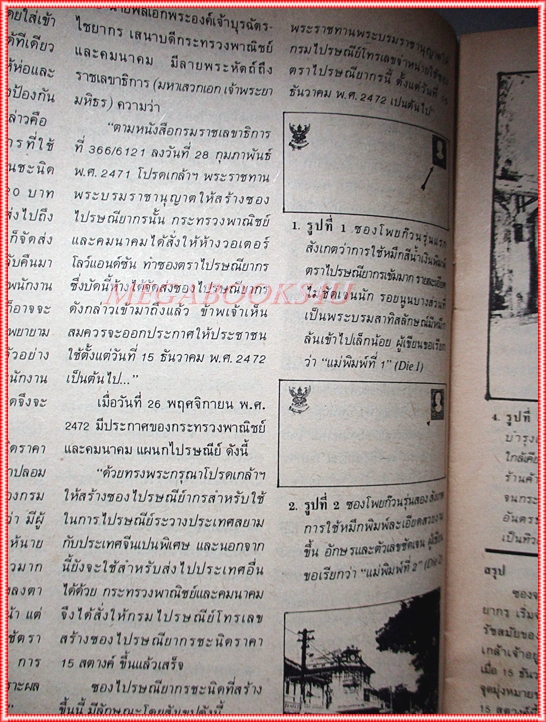 โดยใส่เข้า
ได้ทีเดียว
ได้ห่อและ
งป้องกัน
ล่าวคือ
ารที่ใช้
นชะนิด
๒๐ บาท
ส่งไปถึง
ก็จัดส่ง
จับคืนมา
พนักงาน
ก็อาจจะ
พยายาม
ตัวอย่าง
นักงาน
ดจึงจะ
ดราคา
าปลอม
างกรม
ว่า มีผู้
ให้นาย
วมาก
ลงตา
น้า แต่
ช้ตรา
การ
าะผล
นายพลเอกพระองค์เจ้าบุรฉัตร-
ไชยากร เสนาบดีกระทรวงพาณิชย์
และคมนาคม มีลายพระหัตถ์ถึง
ราชเลขาธิการ (มหาเสวกเอก เจ้าพระยา
มหิธร) ความว่า
"ตามหนังสือกรมราชเลขาธิการ
ที่ 366/6121 ลงวันที่ 28 กุมภาพันธ์
พ.ศ. 2471 โปรดเกล้าฯ พระราชทาน
พระบรมราชานุญาตให้สร้างซอง
ไปรษณียากรนั้น กระทรวงพาณิชย์
และคมนาคมได้สั่งให้ห้างวอเตอร์
โลว์แอนด์ซัน ทำซองตราไปรษณียากร
ซึ่งบัดนี้ห้างได้จัดส่งซองไปรษณียากร
ดังกล่าวเข้ามาถึงแล้ว ข้าพเจ้าเห็น
สมควรจะออกประกาศให้ประชาชน
ใช้ตั้งแต่วันที่ 15 ธันวาคม พ.ศ. 2472
เป็นต้นไป..."
เมื่อวันที่ 26 พฤศจิกายน พ.ศ.
2472 มีประกาศของกระทรวงพาณิชย์
และคมนาคม แผนกไปรษณีย์ ดังนี้
"ด้วยทรงพระกรุณาโปรดเกล้าฯ
ให้สร้างซองไปรษณีย์ากรสำหรับใช้
ในการไปรษณีย์ระวางประเทศสยาม
กับประเทศจีนเปนพิเศษ และนอกจาก
นี้ยังจะใช้สำหรับส่งไปประเทศอื่น
ได้ด้วย กระทรวงพาณิชย์และคมนาคม
จึงได้สั่งให้กรมไปรษณีย์โทรเลข
สร้างซองไปรษณียากรชะนิดราคา
15 สตางค์ ขึ้นแล้วเสร็จ
ซองไปรษณียากรชะนิดที่สร้าง
ขึ้นนี้ มีลักษณะโดยสังเขปดังนี้
พระราชทานพระบรมราชานุญาตให้
กรมไปรษณีย์โทรเลขจำหน่ายใช้ซอง
ตราไปรษณียากรนี้ ตั้งแต่วันที่ 15
ธันวาคม พ.ศ. 2472 เปนต้นไป"
1. รูปที่ 1 ซองโพยก๊วนรุ่นแรก
สังเกตว่าการใช้หมึกสีน้ำเงินพิมพ์
ตราไปรษณียากรเข้มมาก รายละเอียด
ไม่ชัดเจนนัก รอยนูนบางส่วนที่
เป็นพระบรมสาทิสลักษณ์มีหมึก
ล้นเข้าไปเล็กน้อย ผู้เขียนขอเรียก
ว่า "แม่พิมพ์ที่ 1" (Die I)
2. รูปที่ 2 ซองโพยก๊วนรุ่นสอง สังเกต
การใช้หมึกพิมพ์ละเอียดสวยงาม
ขึ้น อักษรและตัวเลขชัดเจน ผู้เขียน
ขอเรียกว่า "แม่พิมพ์ที่ 2"
4. รูปที่
บำรุงเ
ใกล้เคีย
ร้านค้า
จนกระ
อันตรธ
เป็นทิวแ
สรุป
ซองจ
ยากร เริ่มจ
รัชสมัยของ
เกล้าเจ้าอยู่
เมื่อ 15 ธันว
จุดมุ่งหมายข
15 สตางค์ที่
MEGABOOKS4U